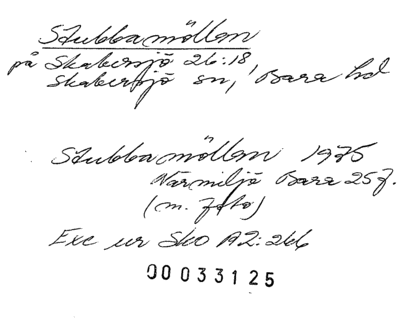 Stubbamöllan
på Skabersjö 26:18,
Skabersjö sn, Bara hd
Stubbamöllan 1975
Närmiljö Bara 257.
(m. foto)
Exc ur Sko A2:266
00033125